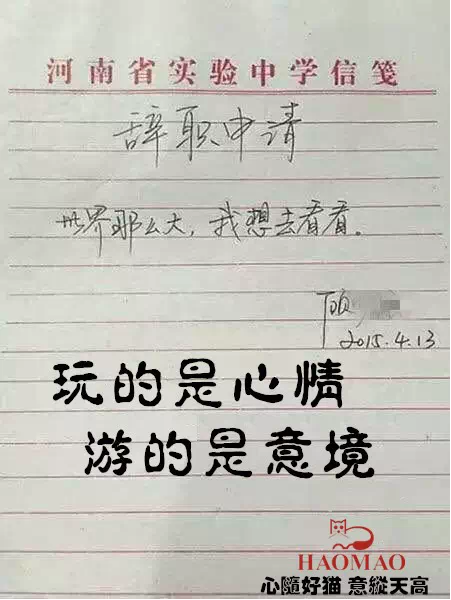 河南省实验中学信笺
辞职申请
世界那么大，我想去看看。
顾
2015.4.13
玩的是心情
游的是意境
HAOMAO
心隨好猫 意縱天高